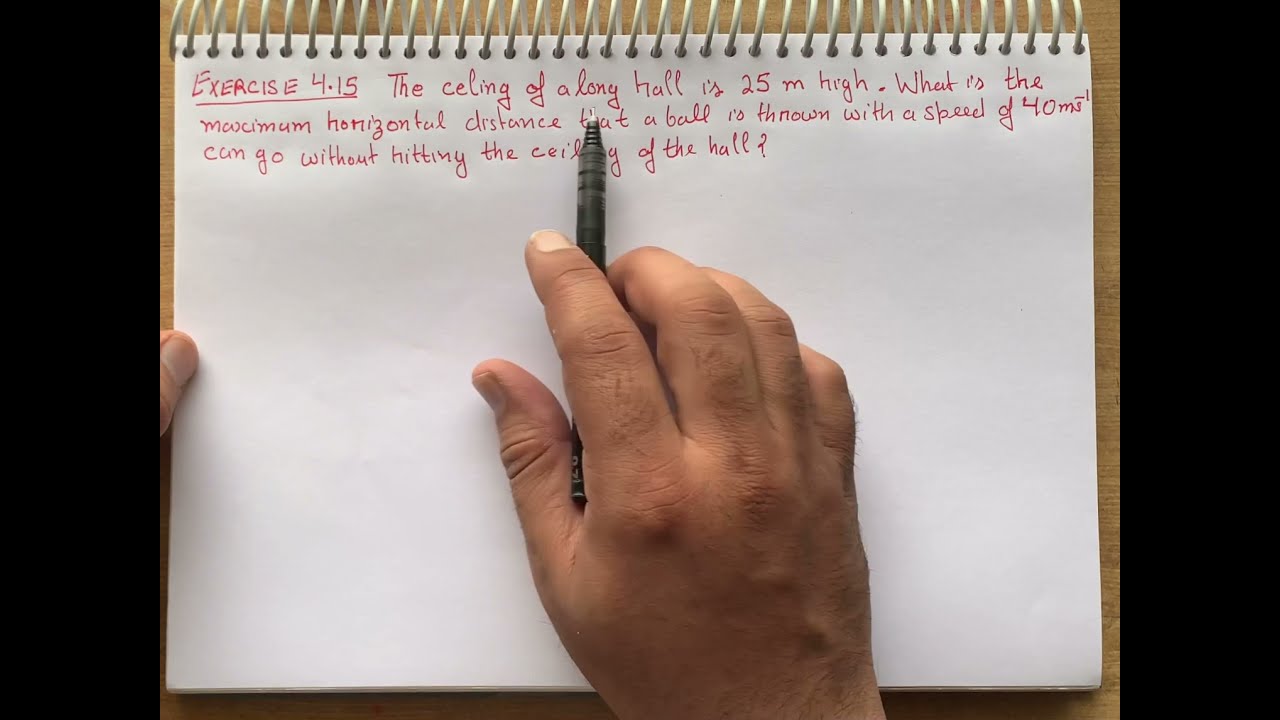 EXERCISE 4.15 The celing of a long hall is 25 m high. What is the
maximum horizontal distance that a ball is thrown with a speed of 40 ms⁻¹
can go without hitting the ceiling of the hall?